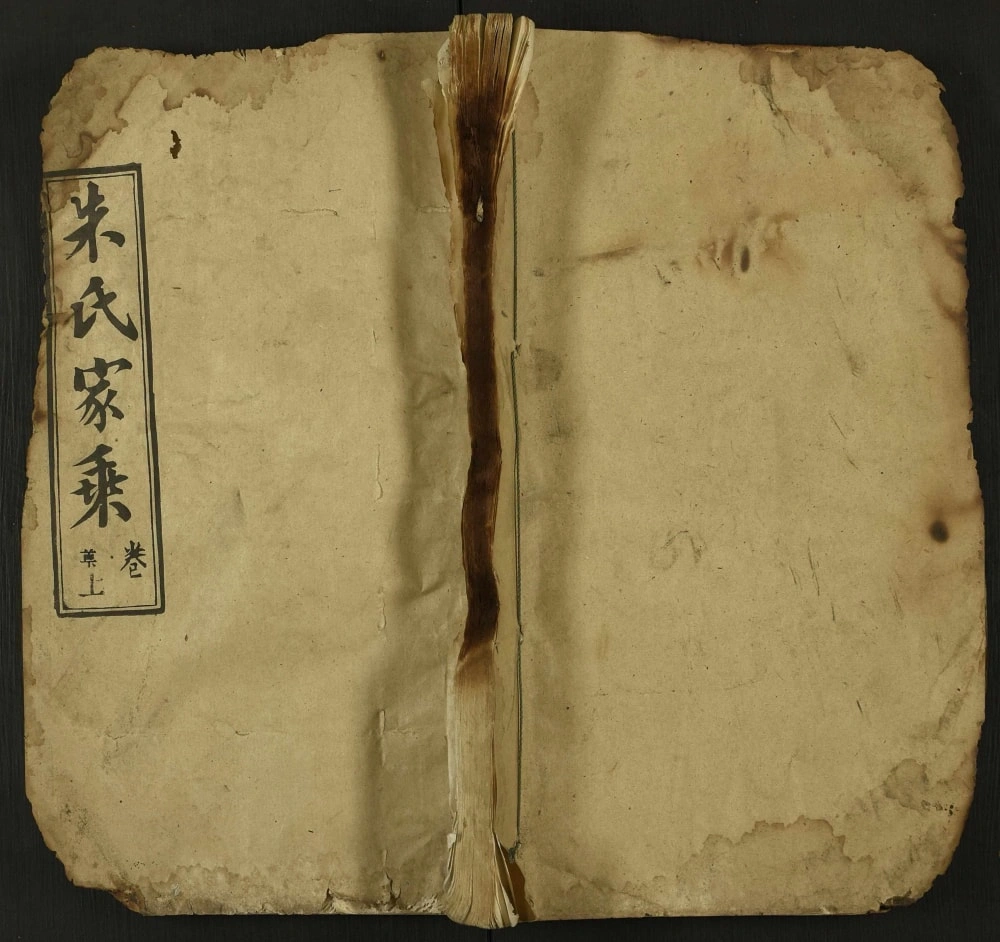 朱氏家乘
卷
上